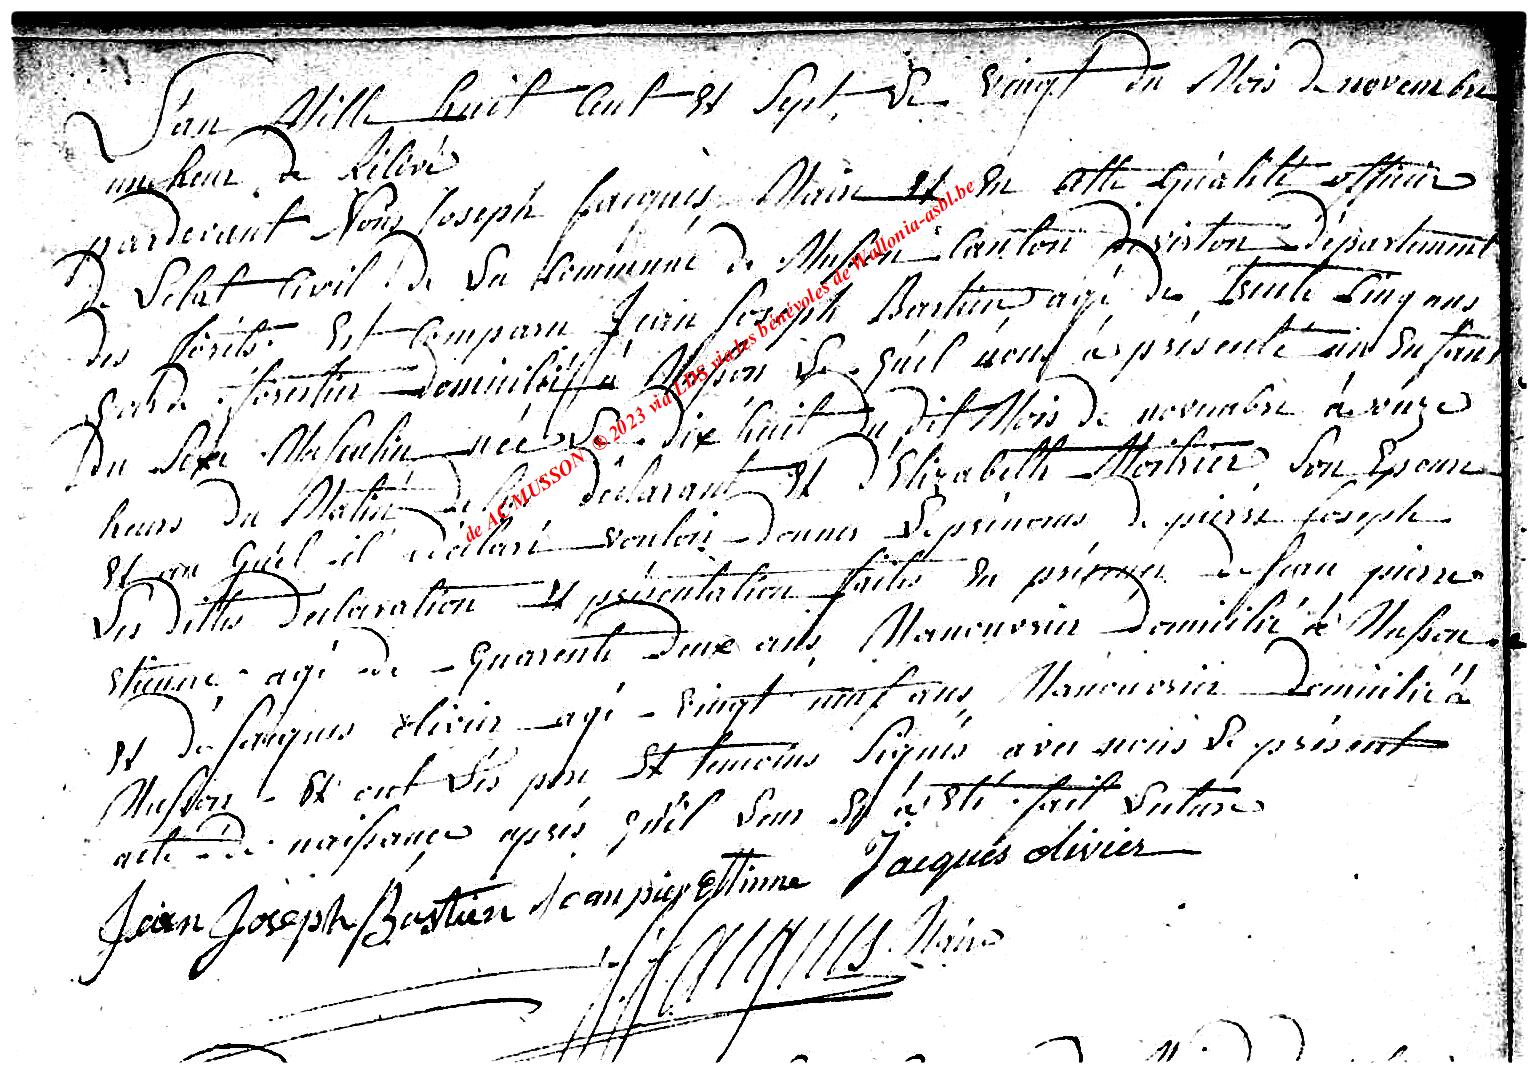 L'an Mille huit Cent Et Sept, Le vingt du Mois de novembre
une heur de Rélévé
pardevant Nous Joseph Jacques, Maire Et En cette Quálité officier
De Lelat Civil De La Commune de Musson Canton De virton Département
des forêts. Est Comparu Jean Joseph Bastien agé de Trente Cinq ans
garde forestier Domicilié à Musson Le Quel nous à présenté un Enfant
Du Sexe Masculin née Le dix huit du dit Mois de novembre à onze
heurs du Matin de lui déclarant Et D'Elizabeth Son Epouse
Et au Quel il à déclaré vouloir donner Le prénoms de pierre Joseph
Les dittes declaration Et présentation faites En présence de Jean pierre
Etienne agé de Quarente Deux ans, Manouvrier Domicilié à Musson
Et dé Jacques olivier agé vingt neuf ans, Manouvrier Domicilié à
Musson Et ont Lés pere Et temoins Signés avec nous Le présent
acte de naissançe aprés Qu'il Leur En à Eté fait Lecture
Jean Joseph Bastien Jean pier Ettinne Jacques olivier
JJacques Maire
de AC MUSSON ©2023 via LDS via les bénévoles de Wallonia-asbl.be